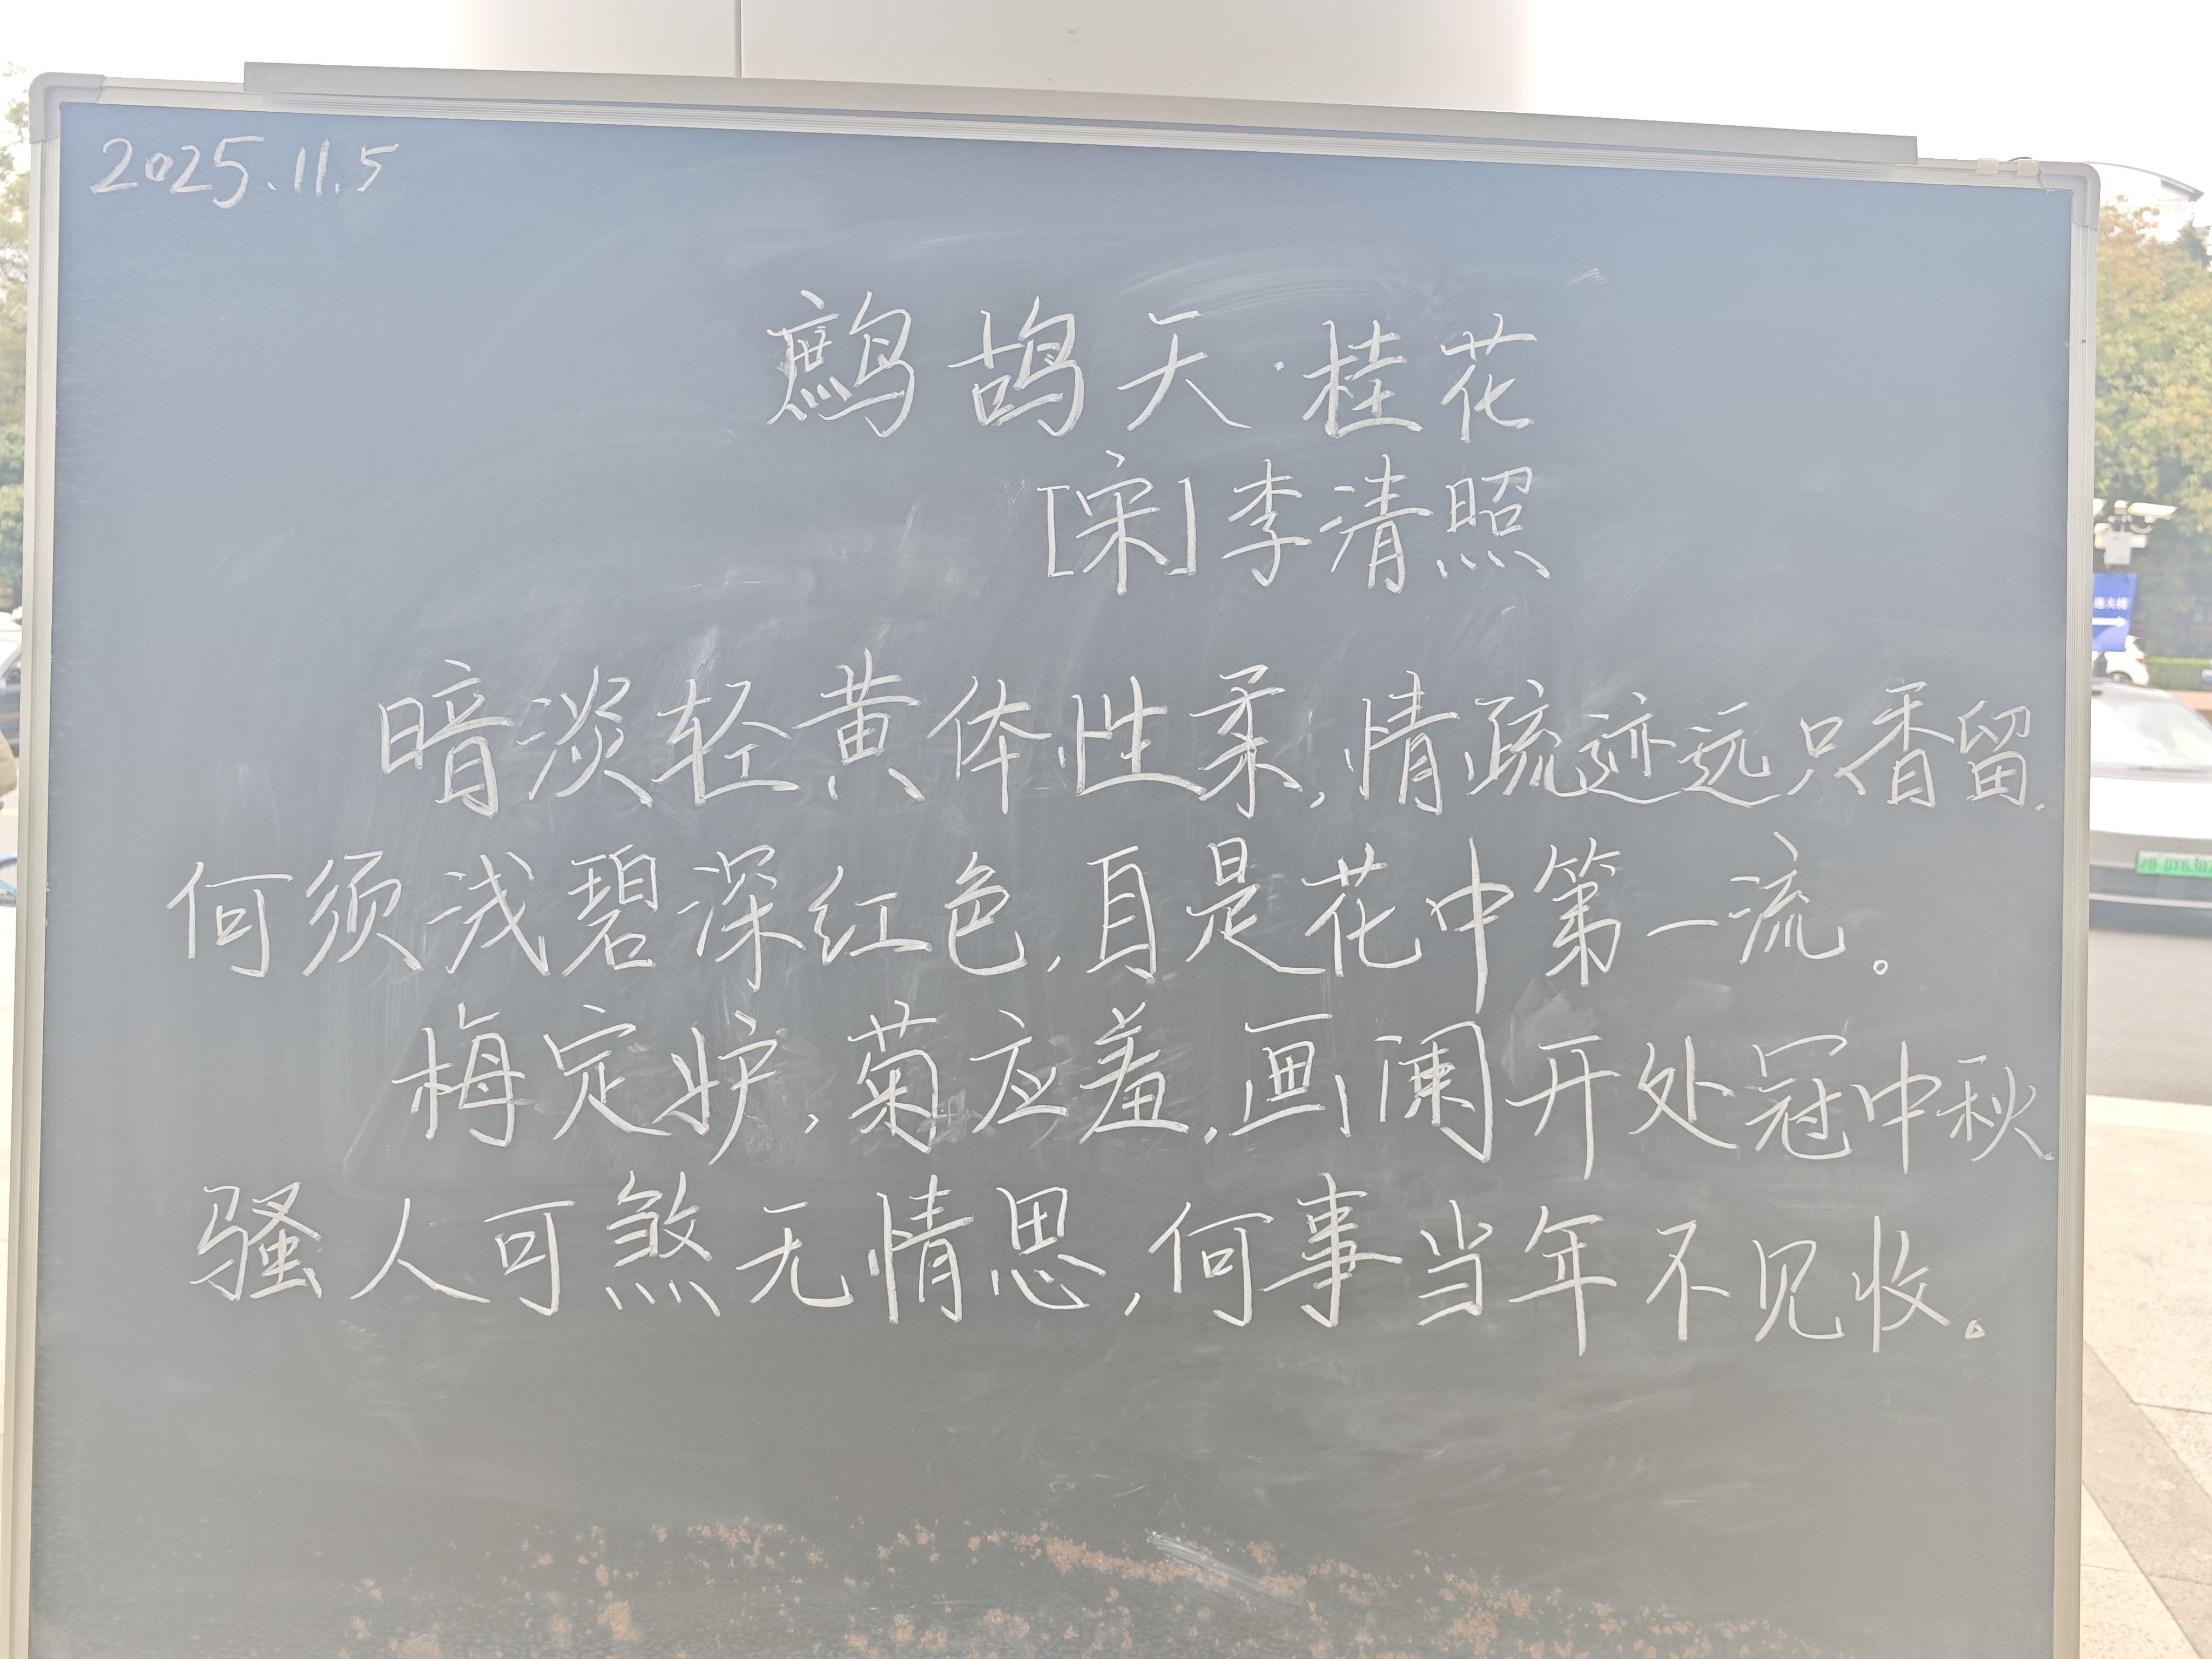 2025.11.5
鹧鸪天·桂花
[宋]李清照
暗淡轻黄体性柔,情疏迹远只香留.
何须浅碧深红色,自是花中第一流。
梅定妒,菊应羞,画阑开处冠中秋.
骚人可煞无情思,何事当年不见收。